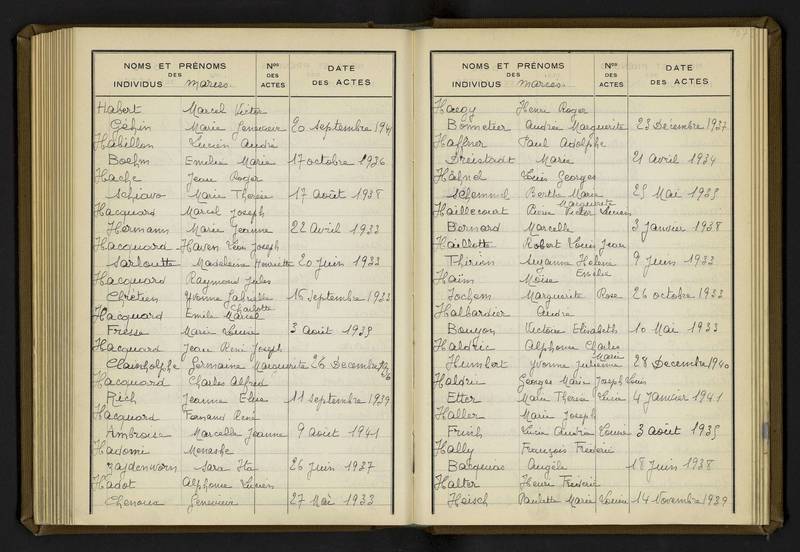 NOMS ET PRÉNOMS DES INDIVIDUS mariés. Nos DES ACTES DATE DES ACTES
Habert Marcel Victor
Géhin Marie Geneviève 20 septembre 1941
Habillon Lucien André
Boehm Emilie Marie 17 octobre 1936
Hache Jean Roger
Schiavo Marie Thérèse 17 août 1938
Hacquard Marcel Joseph
Hermann Marie Jeanne 22 Avril 1933
Hacquard - Haven Léon Joseph
Sarlouette Madeleine Henriette 20 juin 1933
Hacquard Raymond Jules
Chrétien Yvonne Charlotte 16 septembre 1933
Hacquard Emile Marcel
Fresse Marie Louise 3 août 1935
Hacquard Jean René Joseph
Germaine Marguerite 26 Décembre
Hacquard Charles Alfred
Rich Jeanne Elise 11 septembre 1939
Hacquard Fernand René
Ambroise Marcelle Jeanne 9 août 1941
Hadomi Menashe
Zajdenworn Sara Ita 26 juin 1937
Hadot Alphonse Lucien
Chenoux Geneviève 27 Mai 1933
NOMS ET PRÉNOMS DES INDIVIDUS mariés. Nos DES ACTES DATE DES ACTES
Henri Roger
Bonnetier Andrée Marguerite 23 Décembre 1937
Haffner Paul Adolphe
Freistadt Marie 21 avril 1934
Hähnel Louis Georges
Schemmel Berthe Marie Marguerite 25 Mai 1935
Haillecourt Pierre Victor Lucien
Bernard Marcelle 3 janvier 1938
Haillotte Robert Louis Jean
Thirion Suzanne Hélène Emilie 9 juin 1933
Haïm Moïse
Jochem Marguerite Rose 26 octobre 1933
Halbardier André
Bouyon Victoire Elisabeth 10 Mai 1933
Haldric Alphonse Charles
Humbert Yvonne Julienne Marie 28 Décembre 1940
Haldric Georges Marie Joseph Louis
Etter Marie Thérèse Lucie 4 janvier 1941
Haller Marie Joseph
Lucie Andrée Louise 3 août 1935
Hally François Frédéric
Angèle 18 juin 1938
Halter Henri Frédéric
Heisch Paulette Marie Louise 14 Novembre 1939